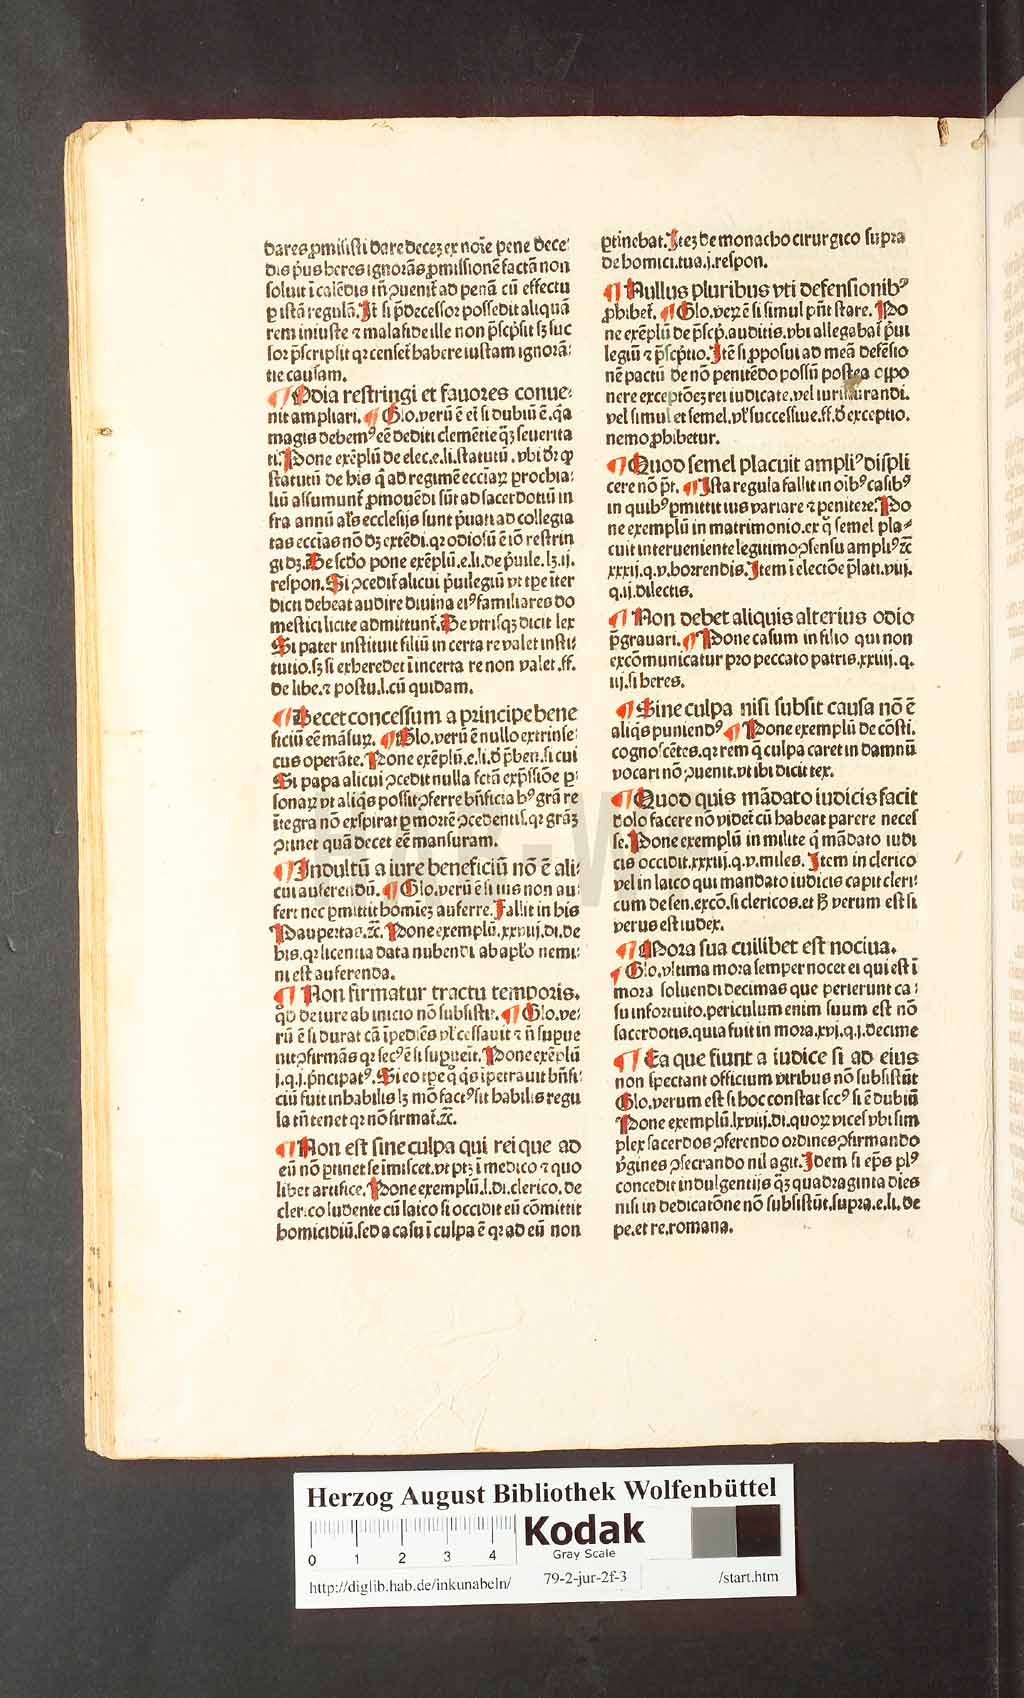 dares ꝓmisisti dare decez ex noīe pene dece⸗
dis p̄us heres ignorās ꝓmissionē factā non
soluit ī calēdis tn̄ ꝯuenit᷑ ad penā cū effectu
ꝑ istā regulā. It̄ si p̄decessor possedit aliquā
rem iniuste ⁊ malafide ille non p̄scpsit sꝫ suc
sor p̄scripsit qꝛ censet᷑ habere iustam ignorā⸗
tie causam.
¶ Odia restringi et fauores conue⸗
nit ampliari. ¶ Glo. verū ē ei si dubiū ē. q̄a
magis debemꝰ eē dediti clemētie q̄ꝫ seuerita
ti. Pone exēplū de elec. e. li. statutū. vbi dr̄ ꝙ
statutū de his q̄ ad regimē ecciaꝝ ꝑrochia⸗
liū assumunt᷑ ꝓmouēdi sūt ad sacerdotiū in
fra annū ad ecclesijs sunt p̄uati ad collegia
tas ecctas nō dꝫ extēdi. qꝛ odiosū ē iō restrin
gi dꝫ. De scd̄o pone exēplū. e. li. de p̄uile. lꝫ. ij.
respon. Si ꝯcedit᷑ alicui p̄uilegiū vt tp̄e īter
dicti debeat audire diuina eiꝰ familiares do
mestici licite admittunt᷑. De vtrisqꝫ dicit lex
Si pater instituit filiū in certa re valet insti⸗
tutio. sꝫ si exheredet ī incerta re non valet. ff.
de libe. ⁊ postu. l. cū quidam.
¶ Decet concessum a principe bene
ficiū eē māsuꝝ. ¶ Glo. verū ē nullo extrinse⸗
cus operāte. Pone exēplū. e. li. d̄ p̄ben. si cui
Si papa alicui ꝯcedit nulla fctā exp̄ssiōe ꝑ⸗
sonaꝝ vt aliq̄s possit ꝯferre bn̄ficia hꝰ grā re
ītegra nō exspirat ꝑ mortē ꝯcedentis. qꝛ grāꝫ
ꝯtinet quā decet eē mansuram.
¶ Indultū a iure beneficiū nō ē ali⸗
cui auferendū. ¶ Glo. verū ē si ius non au⸗
fert nec ꝑmittit homīeꝫ auferre. Fallit in his
Paupertas. ⁊c̄. Pone exemplū. xxviij. di. de
his. qꝛ licentia data nubendi ab aplo nemi⸗
ni est auferenda.
¶ Non firmatur tractu temporis.
qd̄ de iure ab inicio nō subsistit. ¶ Glo. ve⸗
rū ē si durat cā īpediēs vl cessauit ⁊ n̄ supue
nit ꝯfirmās qꝛ secꝰ ē si supueīt. Pone exēplū
j. q. j. p̄ncipatꝰ. Si eo tp̄e q̄ q̄s īpetrauit bn̄fi⸗
ciū fuit inhabilis lꝫ mō factꝰ sit habilis regu
la tn̄ tenet qꝛ nō firmat᷑. ⁊c̄.
¶ Non est sine culpa qui rei que ad
eū nō ꝑtinet se īmiscet. vt ptꝫ ī medico ⁊ quo
libet artifice. Pone exemplū. l. di. clerico. de
clerico ludente cū laico si occidit eū cōmittit
homicidiū. sed a casu ī culpa ē qꝛ ad eū non
ꝑtinebat. Iteꝫ de monacho cirurgico supra
de homici. tua. j. respon.
¶ Nullus pluribus vti defensionibꝰ
ꝓhibet᷑. ¶ Glo. veꝝ ē si simul pn̄t stare. Po
ne exēplū de p̄scp. auditis. vbi allegabat᷑ p̄ui
legiū ⁊ p̄scptio. Itē si ꝓposui ad meā defēsio
nē pactū de nō petitēdo possū postea oppo
nere exceptōeꝫ rei iudicate. vel iurisiurandi.
vel simul et semel. vl successiue. ff. d̄ exceptio.
nemo ꝓhibetur.
¶ Quod semel placuit ampliꝰ displi
cere nō pt̄. ¶ Ista regula fallit in oībꝰ casibꝰ
in quibꝰ ꝑmittit ius variare ⁊ penitere. Po
ne exemplū in matrimonio. ex q̄ semel pla⸗
cuit interueniente legitimo ꝯsensu ampliꝰ ⁊c̄
xxxij. q. v. horrendis. Item ī electōe p̄lati. viij.
q. ij. dilectis.
¶ Non debet aliquis alterius odio
p̄grauari. ¶ Pone casum in filio qui non
excōmunicatur pro peccato patris. xxiiij. q.
iij. si heres.
¶ Sine culpa nisi subsit causa nō ē
aliq̄s puniendꝰ. ¶ Pone exemplū de cōsti.
cognoscētes. qꝛ rem q̄ culpa caret in damnū
vocari nō ꝯuenit. vt ibi dicit tex.
¶ Quod quis mādato iudicis facit
dolo facere nō videt᷑ cū habeat parere neces
se. Pone exemplū in milite q̄ mādato iudi
cis occidit. xxxiij. q. v. miles. Item in clerico
vel in laico qui mandato iudicis capit cleri⸗
cum de sen. excō. si clericos. et ꝧ verum est si
verus est iudex.
¶ Mora sua cuilibet est nociua.
¶ Glo. vltima mora semper nocet ei qui est ī
mora soluendi decimas que perierunt ca⸗
su infortuito. periculum enim suum est nō
sacerdotis. quia fuit in mora. xvj. q. j. decime
¶ Ea que fiunt a iudice si ad eius
non spectant officium viribus nō subsistūt
Glo. verum est si hoc constat secꝰ si ē dubiū
Pone exemplū. lxviij. di. quoꝝ vices vbi sim
plex sacerdos ꝯferendo ordines ꝯfirmando
v̄gines ꝯsecrando nil agit. Idem si ep̄s plꝰ
concedit indulgentijs q̄ꝫ quadraginta dies
nisi in dedicatōne nō subsistūt. supra. e. li. de
pe. et re. romana.
HAB-WF
Herzog August Bibliothek Wolfenbüttel
0 1 2 3 4
Kodak
Gray Scale
http://diglib.hab.de/inkunabeln/ 79-2-jur-2f-3 /start.htm